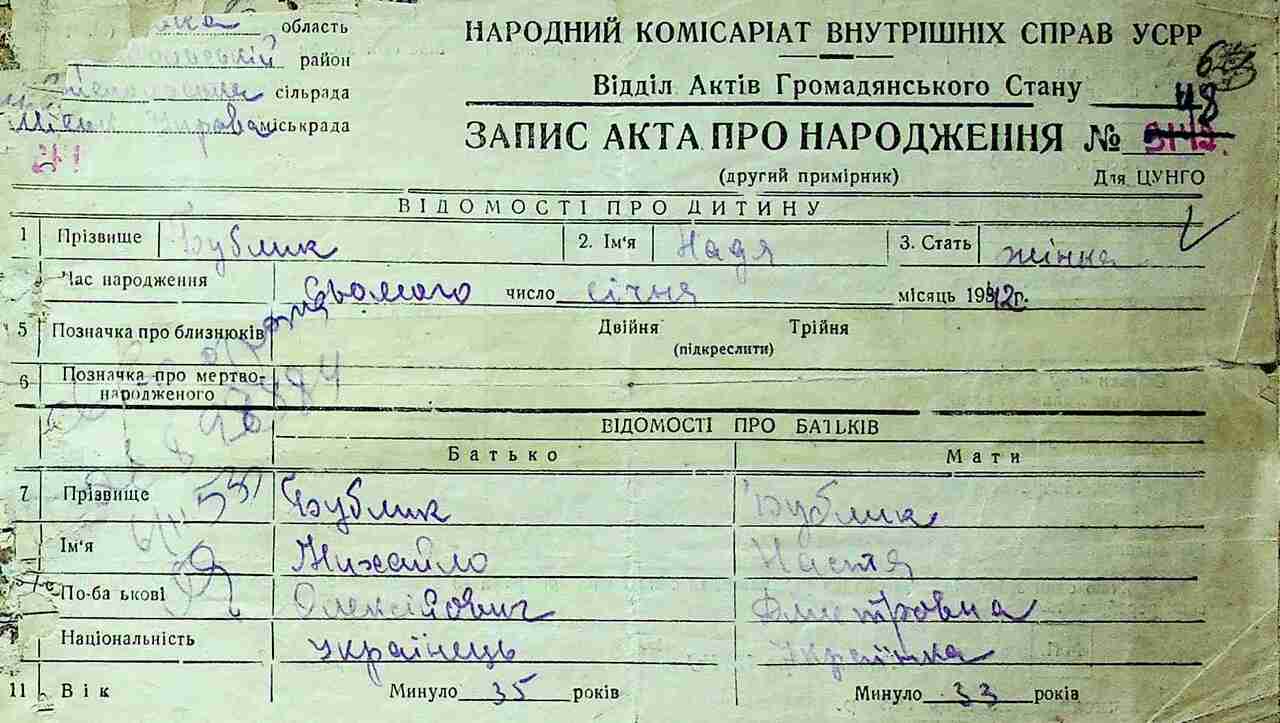 область
район
сільрада
міськрада
НАРОДНИЙ КОМІСАРІАТ ВНУТРІШНІХ СПРАВ УСРР
Відділ Актів Громадянського Стану
48
ЗАПИС АКТА ПРО НАРОДЖЕННЯ №
(другий примірник) Для ЦУНГО
ВІДОМОСТІ ПРО ДИТИНУ
1 Прізвище Бублик 2. Ім'я Надя 3. Стать жінка
Час народження Сьомого число січня місяць 1942г.
5 Позначка про близнюків Двійня Трійня
(підкреслити)
6 Позначка про мертво-
народженого
ВІДОМОСТІ ПРО БАТЬКІВ
Батько Мати
7 Прізвище Бублик Бублик
Ім'я Михайло Настя
По-ба ькові Олексійович Дмітровна
Національність Українець Українка
11 Вік Минуло 35 років Минуло 33 років